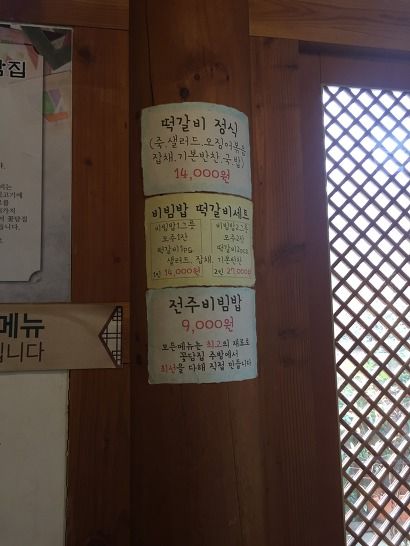 떡갈비 정식
(죽.샐러드.오징어볶음
잡채.기본반찬.국밥)
14,000원
비빔밥 떡갈비세트
비빔밥1그릇
모주1잔
떡갈비1pcs
비빔밥2그릇
모주2잔
떡갈비2pcs
샐러드. 잡채. 기본반찬
1인 14,000원
2인 27,000원
전주비빔밥
9,000원
모든메뉴는 최고의 재료로
꽃담집 주방에서
최선을 다해 직접 만듭니다
담집
메뉴
입니다